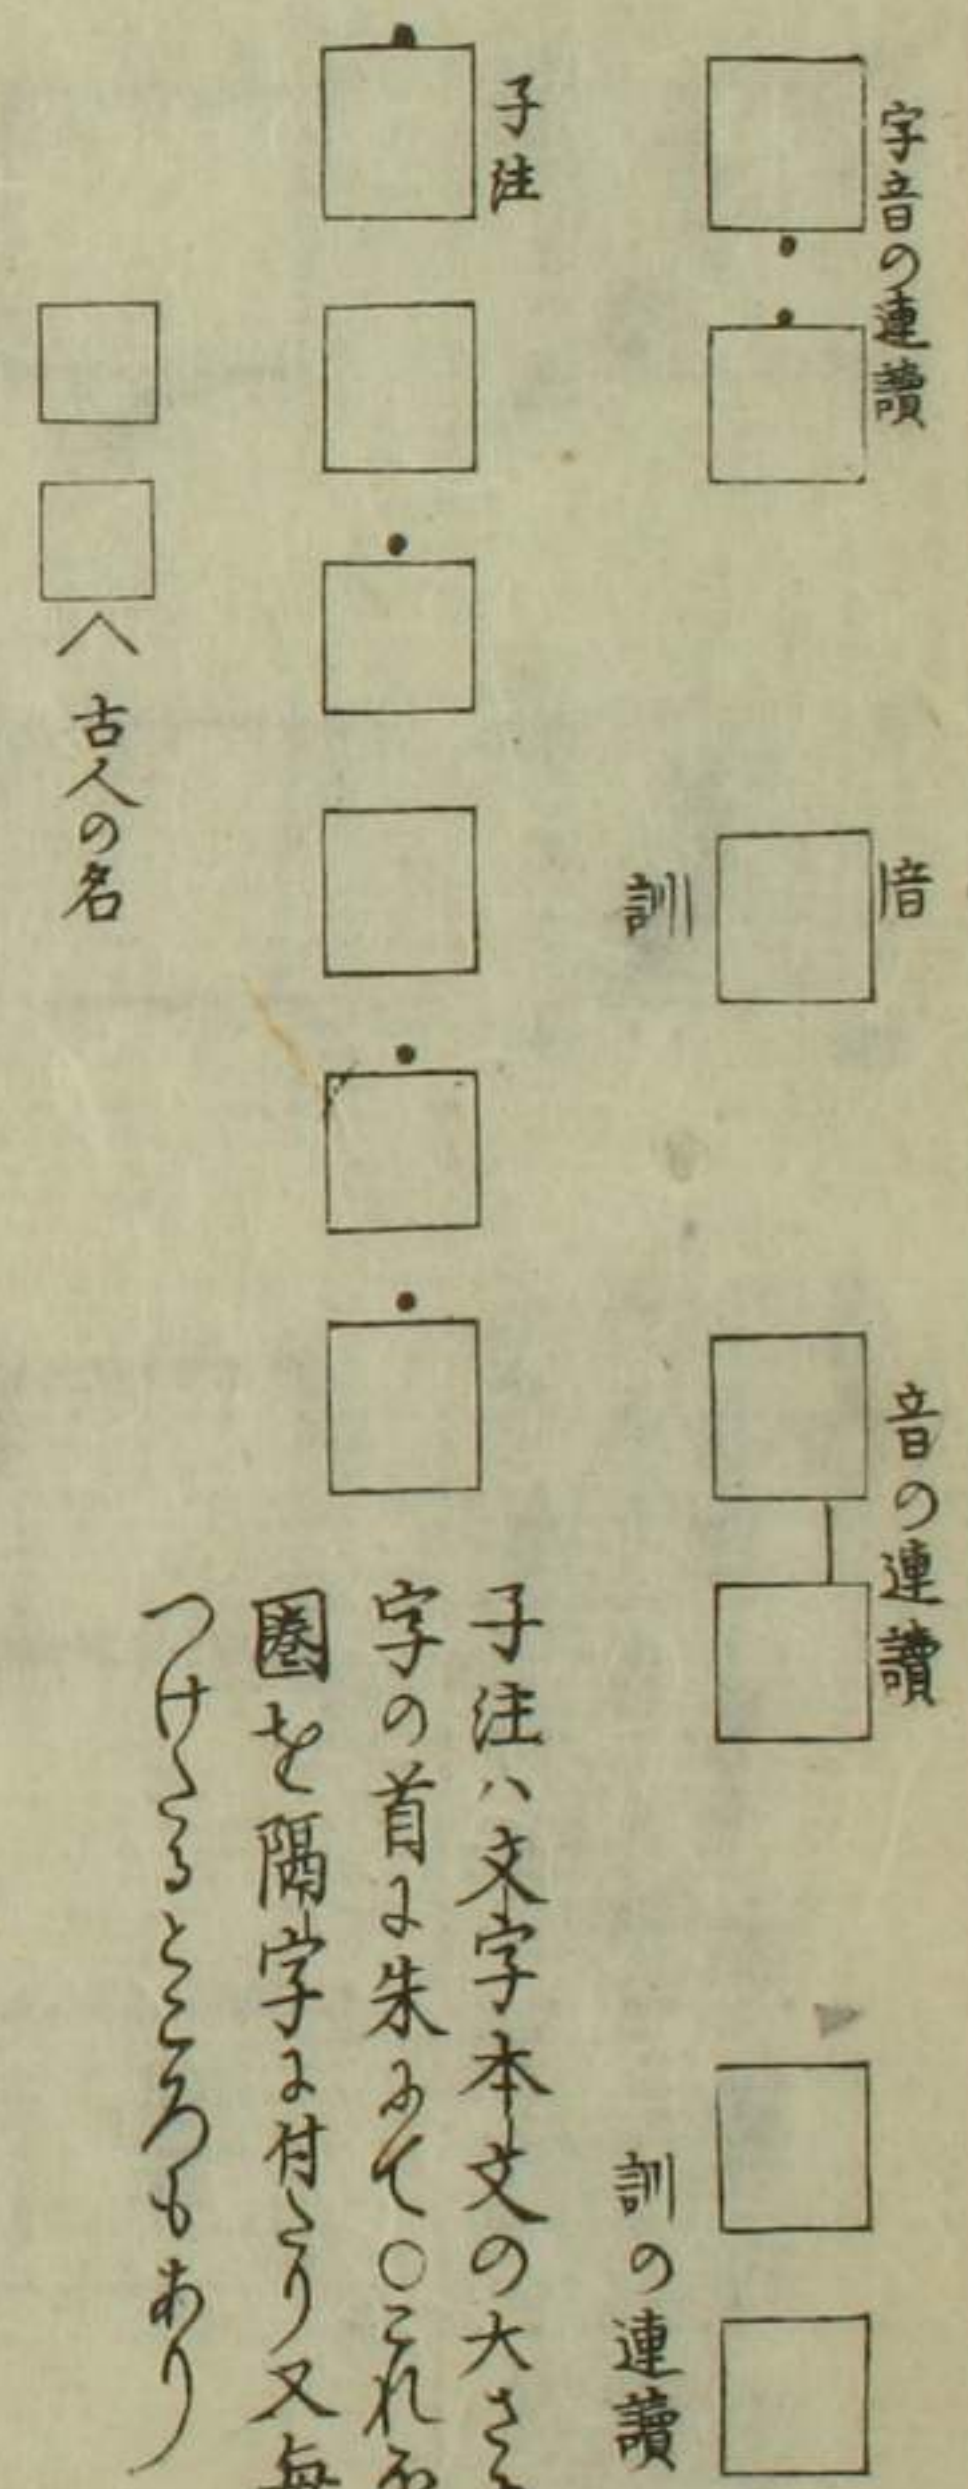 字音の連讀
音
訓
音の連讀
訓の連讀
子注
子注ハ文字本文の大さ
字の首に朱にて〇これ
圏を隔字に付たり又無
つけたるところもあり
古人の名